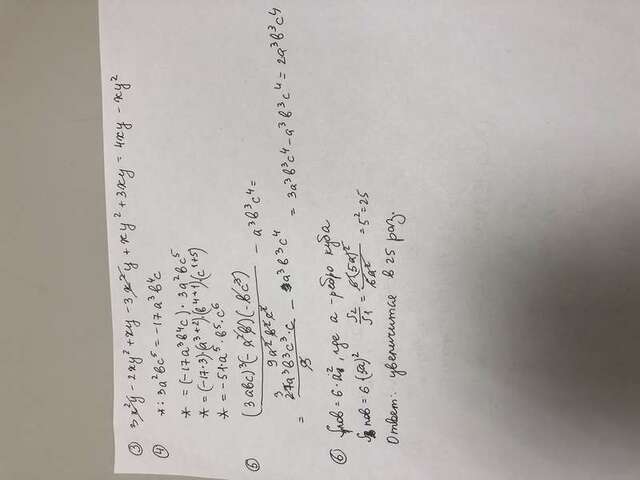 ③ 3x²y - 2xy² + xy - 3x²y + xy² + 3xy = 4xy - xy²
④ *: 3a²bc⁵ = -17a³b⁴c
* = (-17a³b⁴c) · 3a²bc⁵
* = (-17·3)(a³⁺²)·(b⁴⁺¹)·(c¹⁺⁵)
* = -51a⁵·b⁵·c⁶
⑤ (3abc)³(-a²b)(-bc³) - a³b³c⁴ =
9a²b²c²
= 27a³b³c³·c - a³b³c⁴ = 3a³b³c⁴ - a³b³c⁴ = 2a³b³c⁴
⑥ Sпов = 6·a², где a - ребро куба
Sпов = 6(5a)² S₂/S₁ = 6(5a)²/6a² = 5² = 25
Ответ: увеличится в 25 раз.